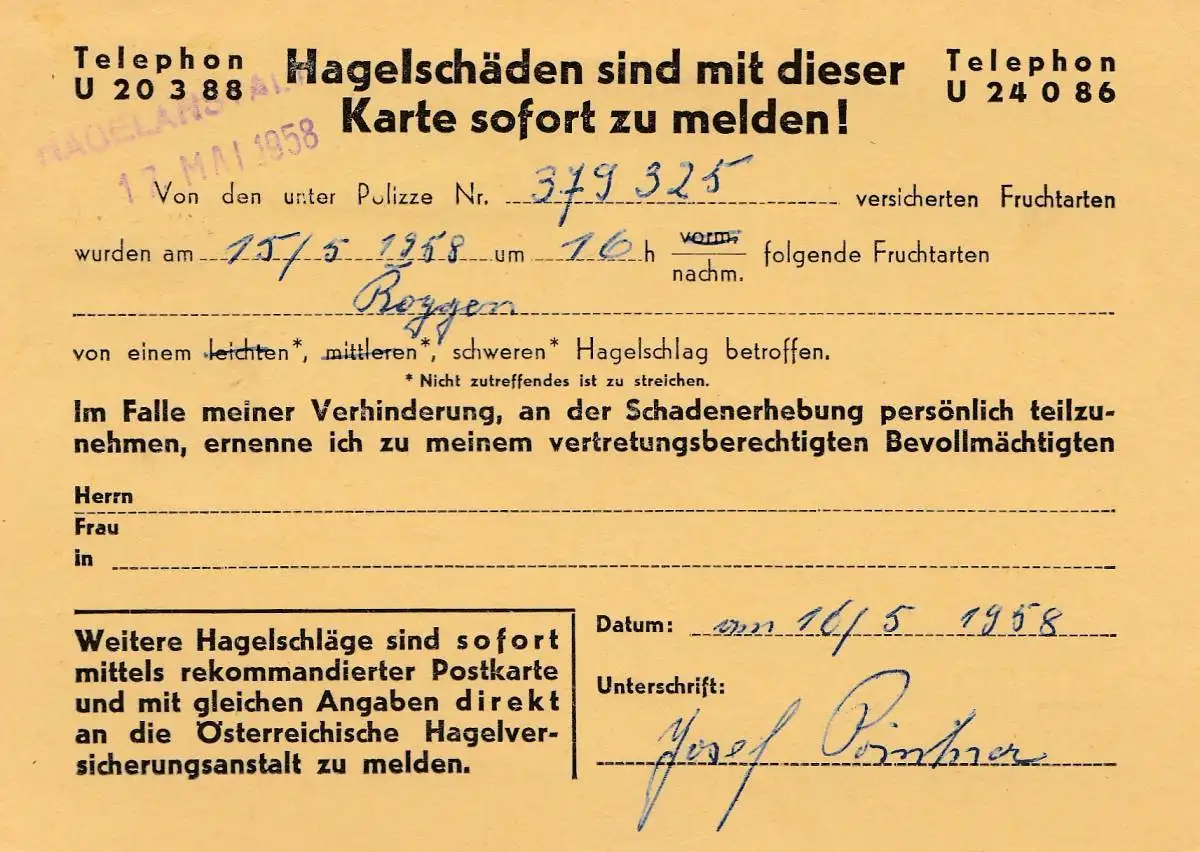 Telephon
U 20 3 88
Hagelschäden sind mit dieser
Karte sofort zu melden!
Telephon
U 24 0 86
HAGELANSTALT
17. MAI 1958
Von den unter Polizze Nr. 379 325 versicherten Fruchtarten
wurden am 15/5 1958 um 16 h vorm. nachm. folgende Fruchtarten
Roggen
von einem leichten*, mittleren*, schweren* Hagelschlag betroffen.
* Nicht zutreffendes ist zu streichen.
Im Falle meiner Verhinderung, an der Schadenerhebung persönlich teilzu-
nehmen, ernenne ich zu meinem vertretungsberechtigten Bevollmächtigten
Herrn
Frau
in
Weitere Hagelschläge sind sofort
mittels rekommandierter Postkarte
und mit gleichen Angaben direkt
an die Österreichische Hagelver-
sicherungsanstalt zu melden.
Datum: am 16/5 1958
Unterschrift:
Josef